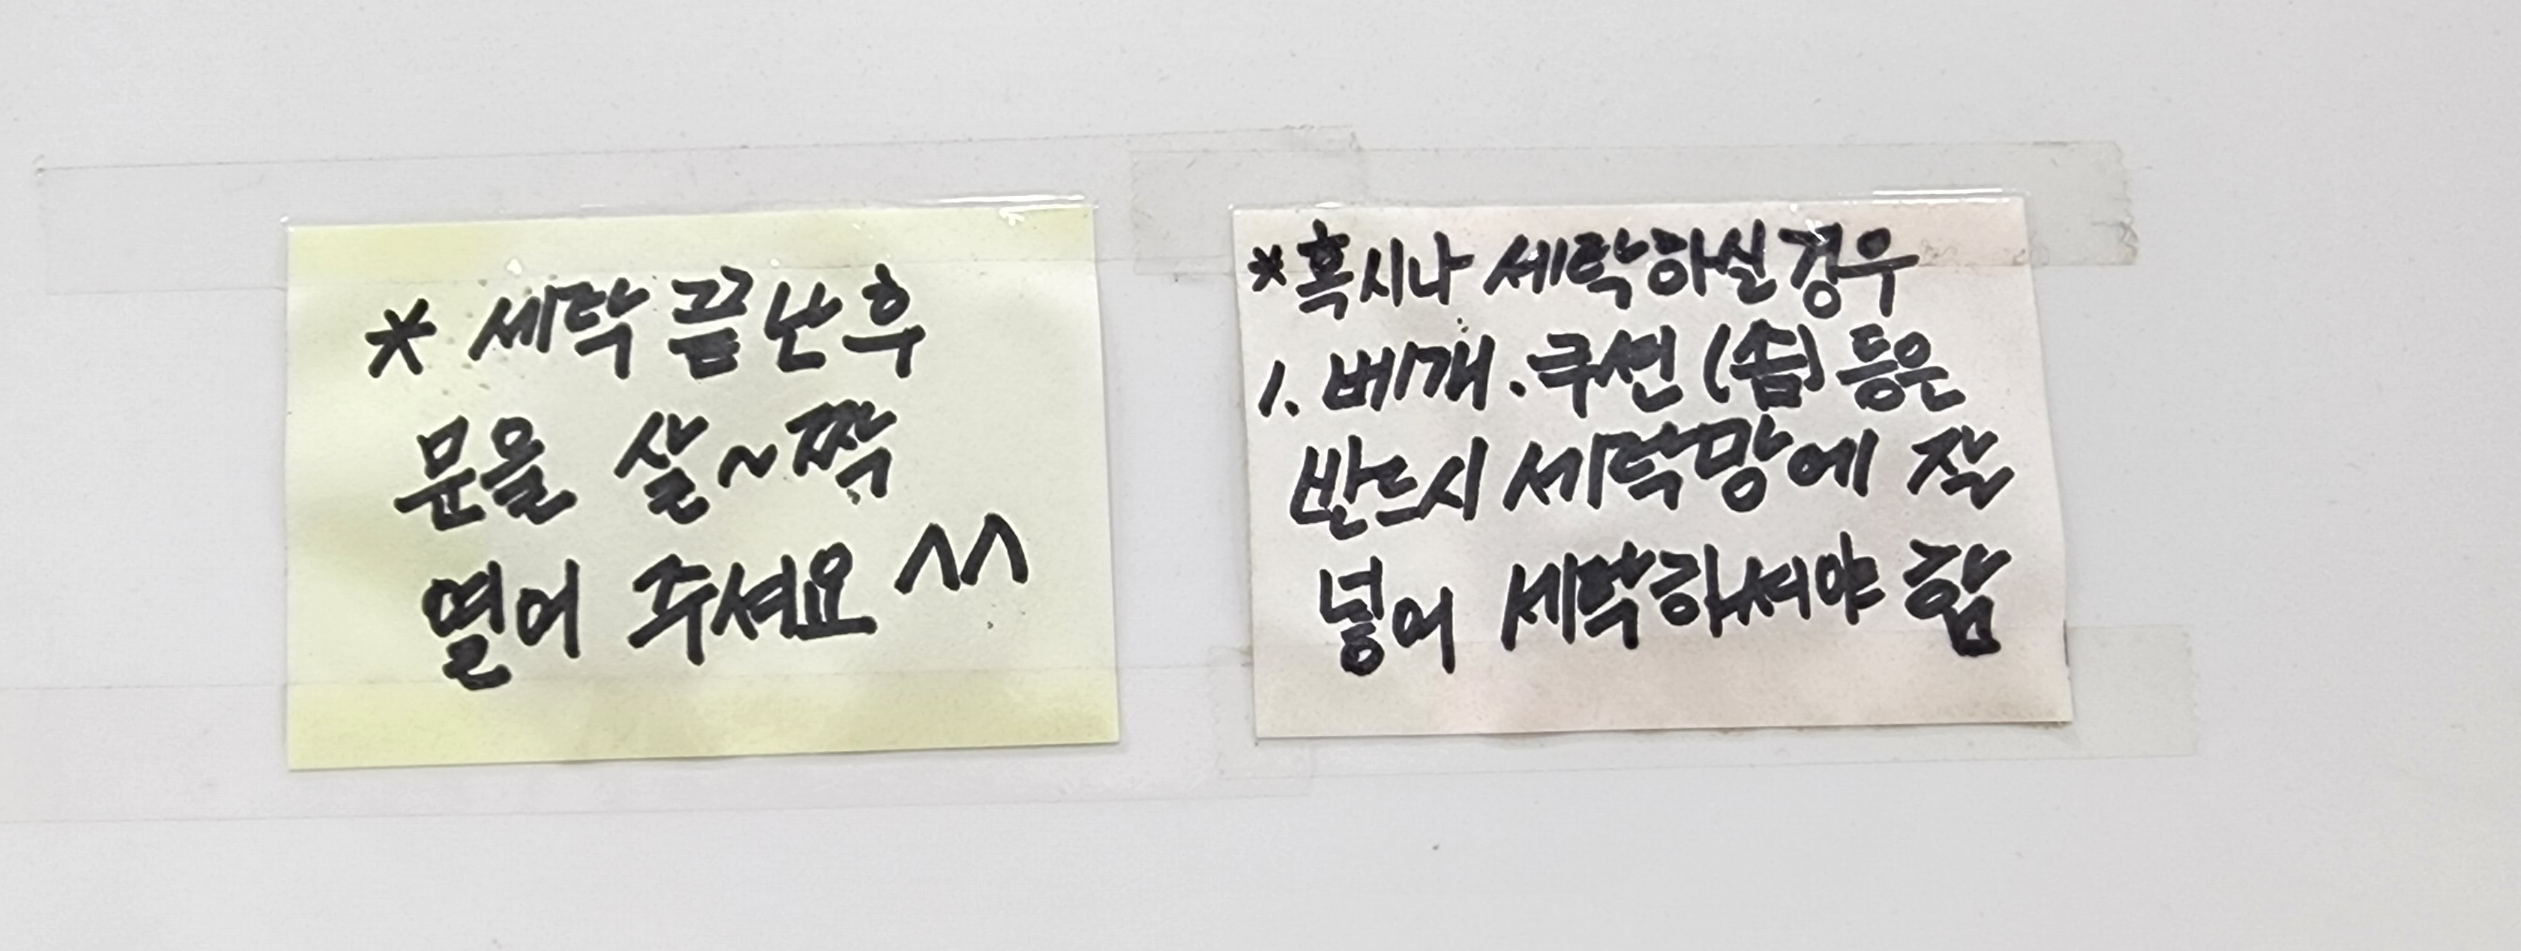 * 세탁 끝난후
문을 살~짝
열어 주셔요 ^^
*혹시나 세탁하실경우
1. 베개.쿠션 (솜) 등은
반드시 세탁망에 잘
넣어 세탁하셔야 함